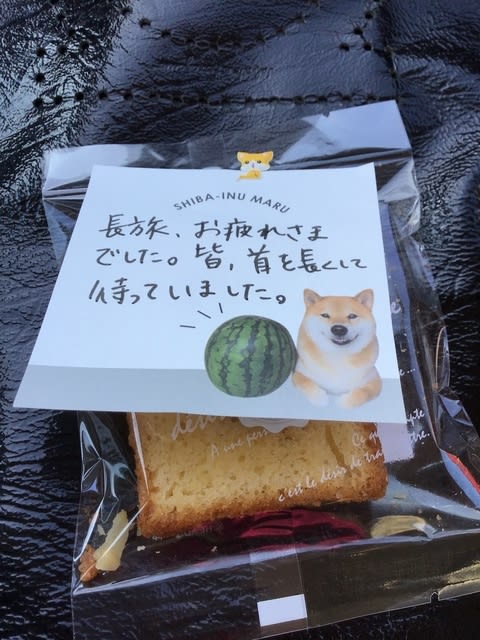 SHIBA-INU MARU
長旅、お疲れさま
でした。皆、首を長くして
待っていました。
A une per
Ce qu
c'est le désir de tra